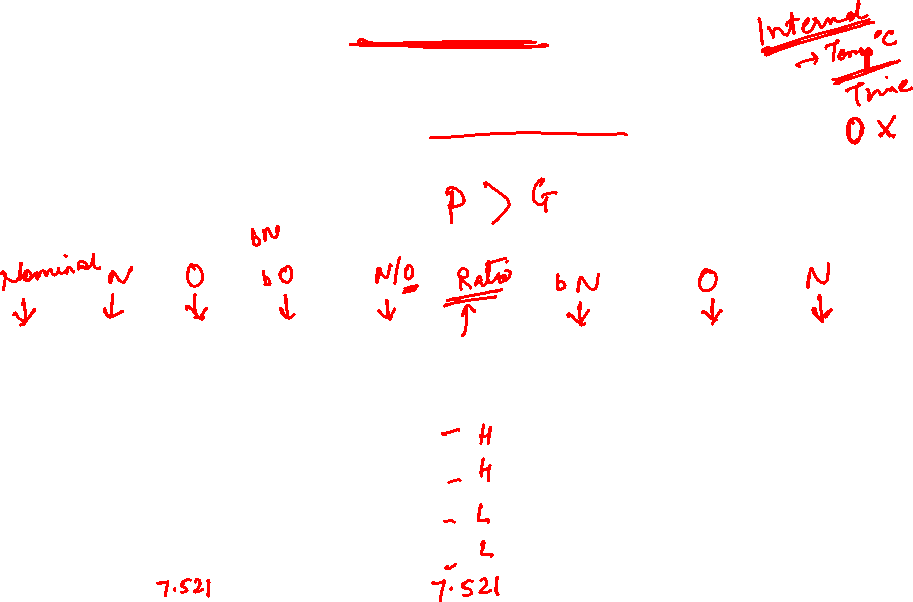 Internal
→ Temp °C
Time
O X
P > G
bN
Nominal N O bO N/O Ratio bN O N
- H
- H
- L
- L
7.521 7.521